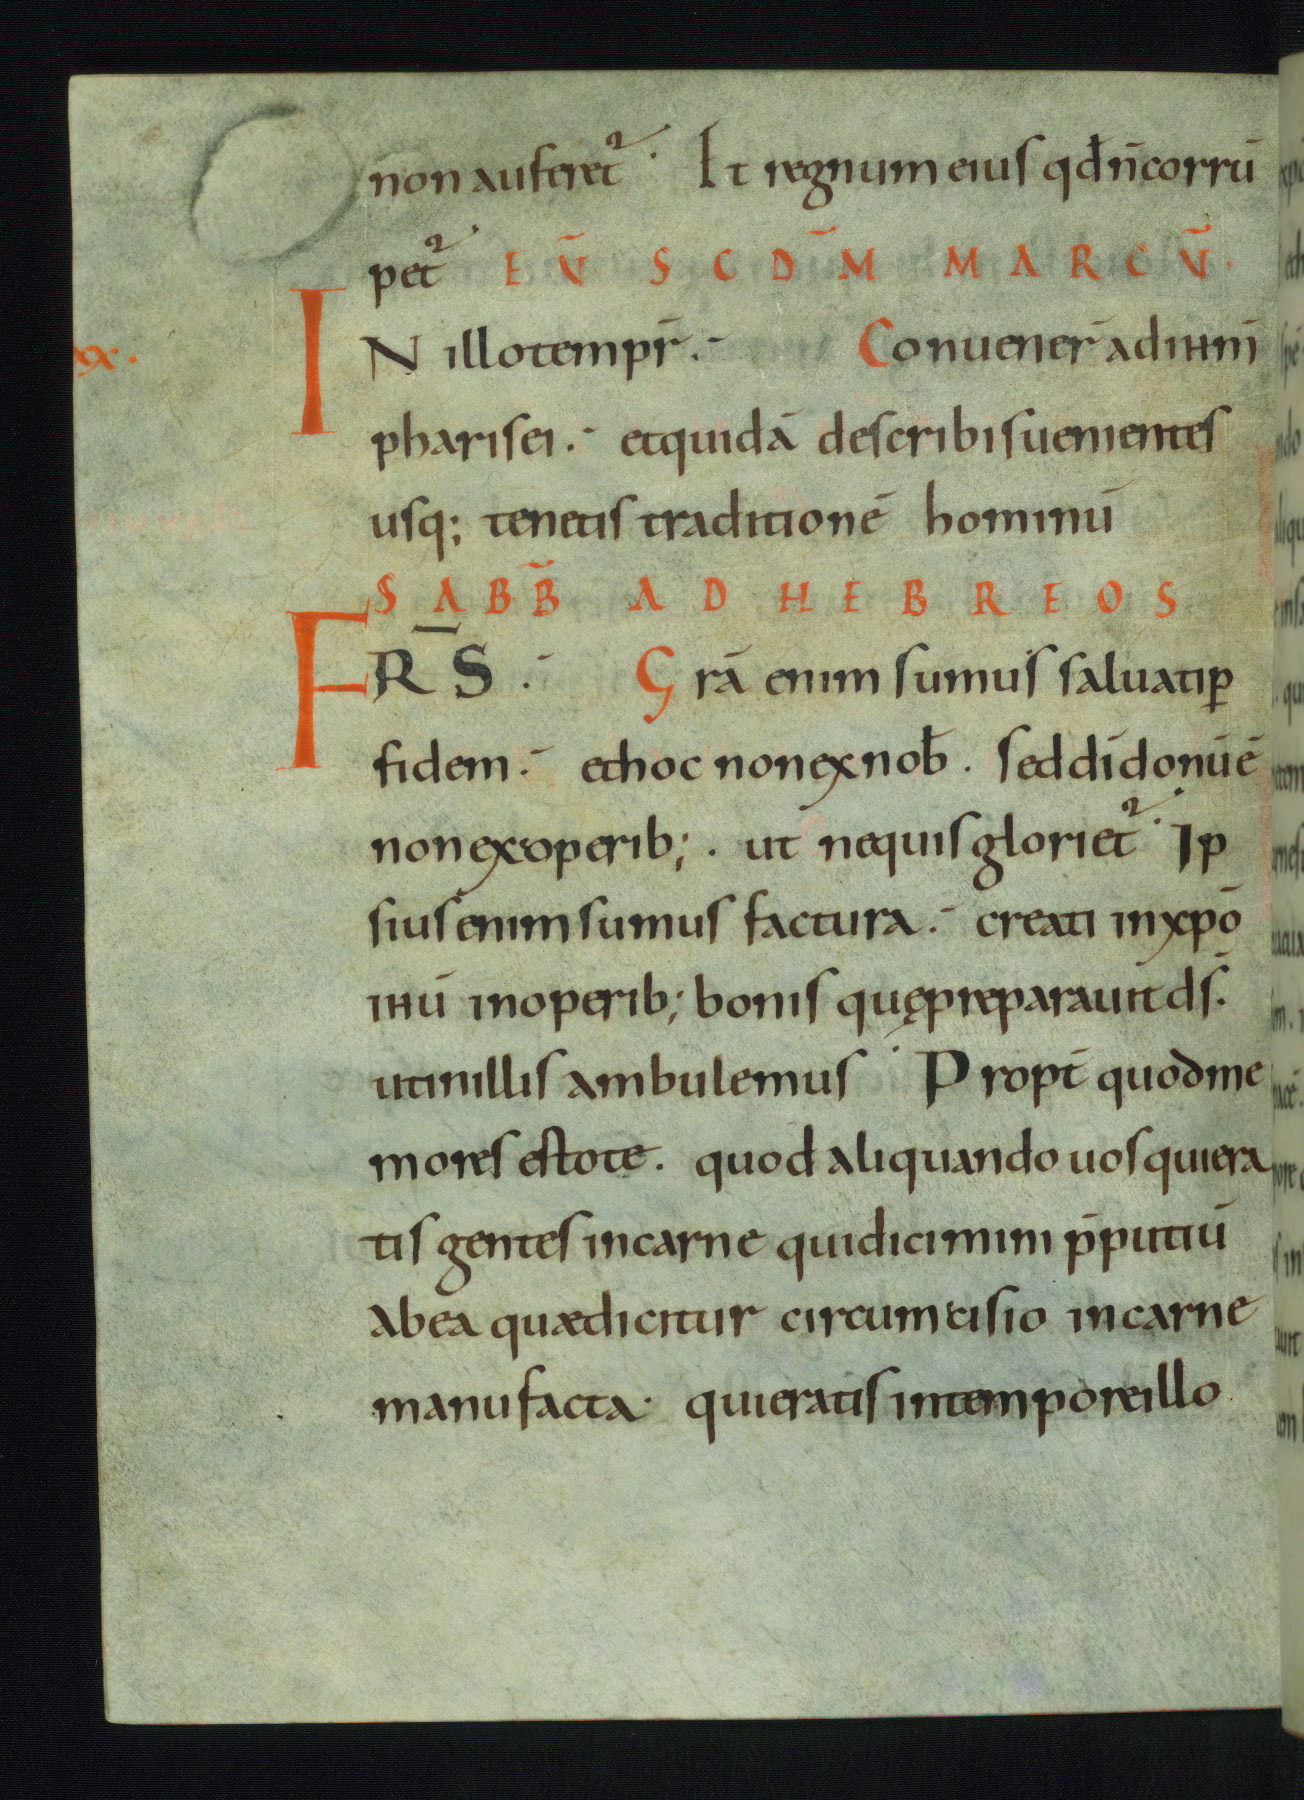 non auferet᷑. Et regnum eius qđ n̄ corrū
pet᷑ EṼ SCDM̃ MARCṼ.
xx.
IN illo tempr̄. Conuener̄ ad ihm̄
pharisei. et quidā de scribis uenientes
usq; tenetis traditionē hominū
SABB̃ AD HEBREOS
FR̄S. Grā enim sumus saluati ꝑ
fidem. et hoc non ex nob̄. sed dī donū ē
non ex operib;. ut nequis gloriet᷑. Ip
sius enim sumus factura. creati in xp̄o
ihū in operib; bonis quę preparauit ds̄.
ut in illis ambulemus. Propt̄ quod me
mores estote. quod aliquando uos qui era
tis gentes in carne qui dicimini p̄putiū
ab ea quæ dicitur circumcisio in carne
manu facta. qui eratis in tempore illo